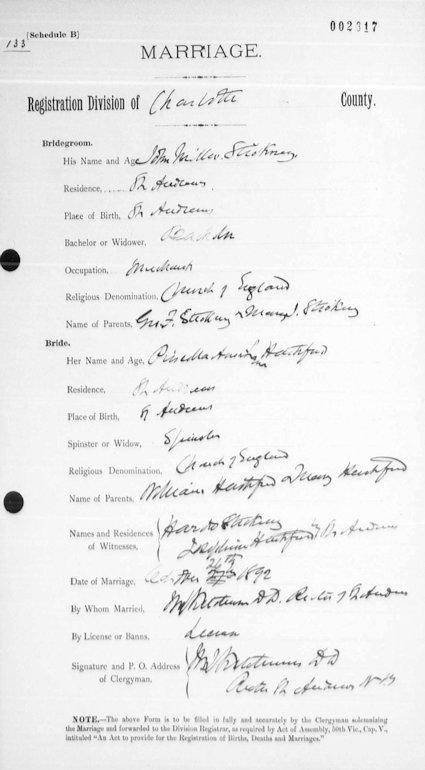 002617
[Schedule B]
133
MARRIAGE.
Registration Division of Charlotte County.
Bridegroom.
His Name and Age, John
Residence, St Andrews
Place of Birth, St Andrews
Bachelor or Widower,
Occupation, Merchant
Religious Denomination, Church of England
Name of Parents, Geo. F.
Bride.
Her Name and Age, Hartford
Residence, St Andrews
Place of Birth, St Andrews
Spinster or Widow, Spinster
Religious Denomination, Church of England
Name of Parents, William Hartford & Mary Hartford
Names and Residences
of Witnesses, Josephine Hartford St Andrews
Date of Marriage, 26th 1892
By Whom Married, D.D. Rector of St Andrews
By License or Banns, License
Signature and P. O. Address DD
of Clergyman. Rector St Andrews N.B
NOTE.—The above Form is to be filed in fully and accurately by the Clergyman solemnizing
the Marriage and forwarded to the Division Registrar, as required by Act of Assembly, 50th Vic., Cap. V.,
intituled "An Act to provide for the Registration of Births, Deaths and Marriages."